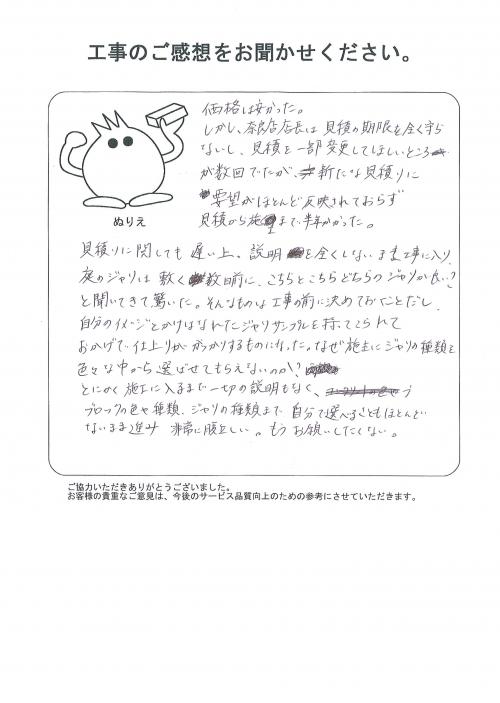 工事のご感想をお聞かせください。
価格は安かった。
しかし、奈良店店長は見積の期限を全く守ら
ないし、見積を一部変更してほしいところ
が数回でたが、新たな見積りに
要望がほとんど反映されておらず
見積から施まで半年かかった。
ぬりえ
見積りに関しても遅い上、説明を全くしないまま工事に入り、
庭のジャリは敷く数日前に、こちらとこちらどちらのジャリが良い?
と聞いてきて、驚いた。そんなものは工事の前に決めておくことだし、
自分のイメージとかけはなれたジャリサンプルを持ってこられて
おかげで仕上りがガッカリするものになった。なぜ施主にジャリの種類を
色々な中から選ばせてもらえないのか?
とにかく施工に入るまで一切の説明もなく、
ブロックの色や種類、ジャリの種類まで自分で選べることもほとんど
ないまま進み 非常に腹立しい。もうお願いしたくない。
ご協力いただきありがとうございました。
お客様の貴重なご意見は、今後のサービス品質向上のための参考にさせていただきます。